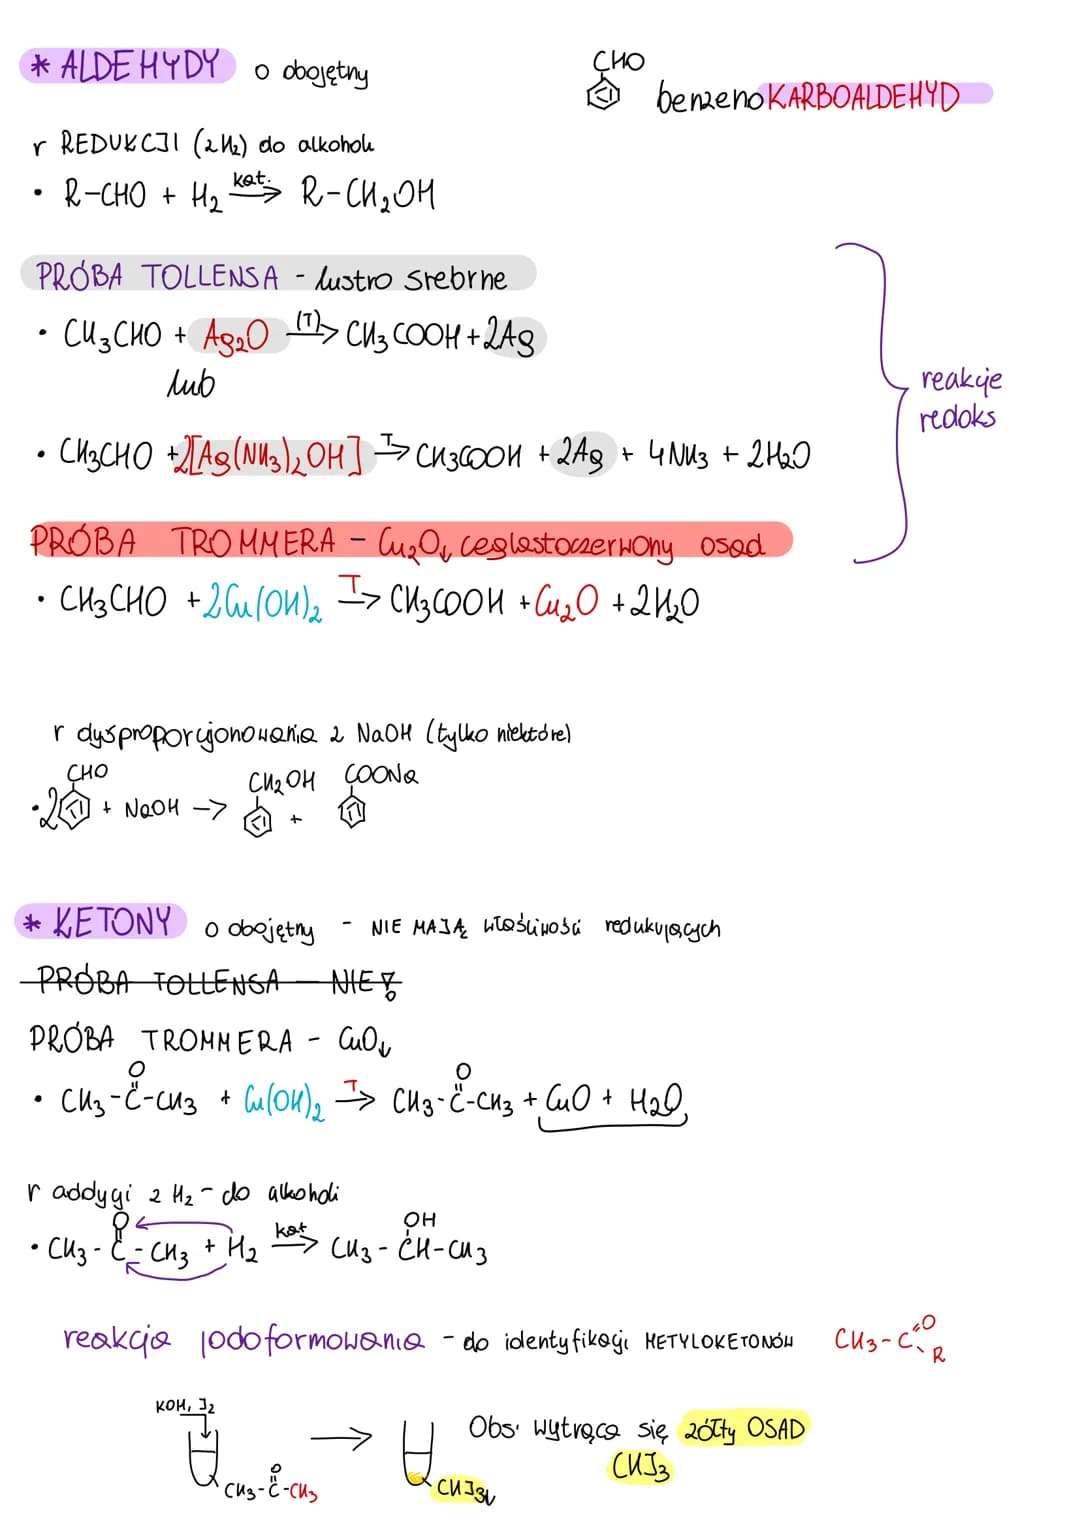 * ALDEHYDY o obojętny
CHO
benzenoKARBOALDEHYD
r REDUKCJI (z H₂) do alkoholu
• R-CHO + H₂ kat.→ R-CH₂OH
PRÓBA TOLLENSA - lustro srebrne
• CH₃CHO + Ag₂O (T)→ CH₃COOH + 2Ag
lub
• CH₃CHO + 2[Ag(NH₃)₂OH] T→ CH₃COOH + 2Ag + 4NH₃ + 2H₂O
reakcje
redoks
PRÓBA TROMMERA - Cu₂O↓ ceglastoczerwony osad
• CH₃CHO + 2Cu(OH)₂ T→ CH₃COOH + Cu₂O + 2H₂O
r dysproporcjonowania z NaOH (tylko niektóre)
CHO CH₂OH COONa
• 2 + NaOH → +
* KETONY o obojętny - NIE MAJĄ właściwości redukujących
PRÓBA TOLLENSA - NIE!
PRÓBA TROMMERA - CuO↓
O O
• CH₃-C-CH₃ + Cu(OH)₂ T→ CH₃-C-CH₃ + CuO + H₂O
r addycji z H₂ - do alkoholi
O OH
• CH₃-C-CH₃ + H₂ kat→ CH₃-CH-CH₃
reakcja jodoformowania - do identyfikacji METYLOKETONÓW CH₃-C=O
R
KOH, J₂
→
Obs: wytrąca się żółty OSAD
CHJ₃
O
CH₃-C-CH₃
CHJ₃↓